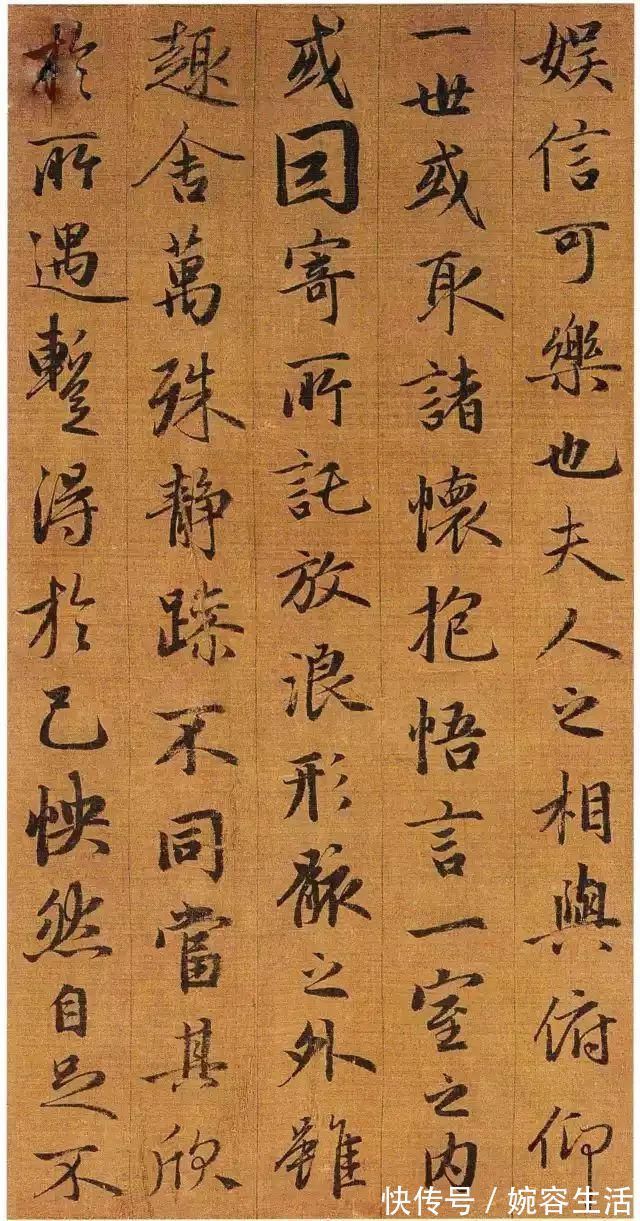 娛信可樂也夫人之相與俯仰
一世或取諸懷抱悟言一室之内
或因寄所託放浪形骸之外雖
趣舍萬殊静躁不同當其欣
於所遇蹔得於己怏然自足不
快传号/婉容生活